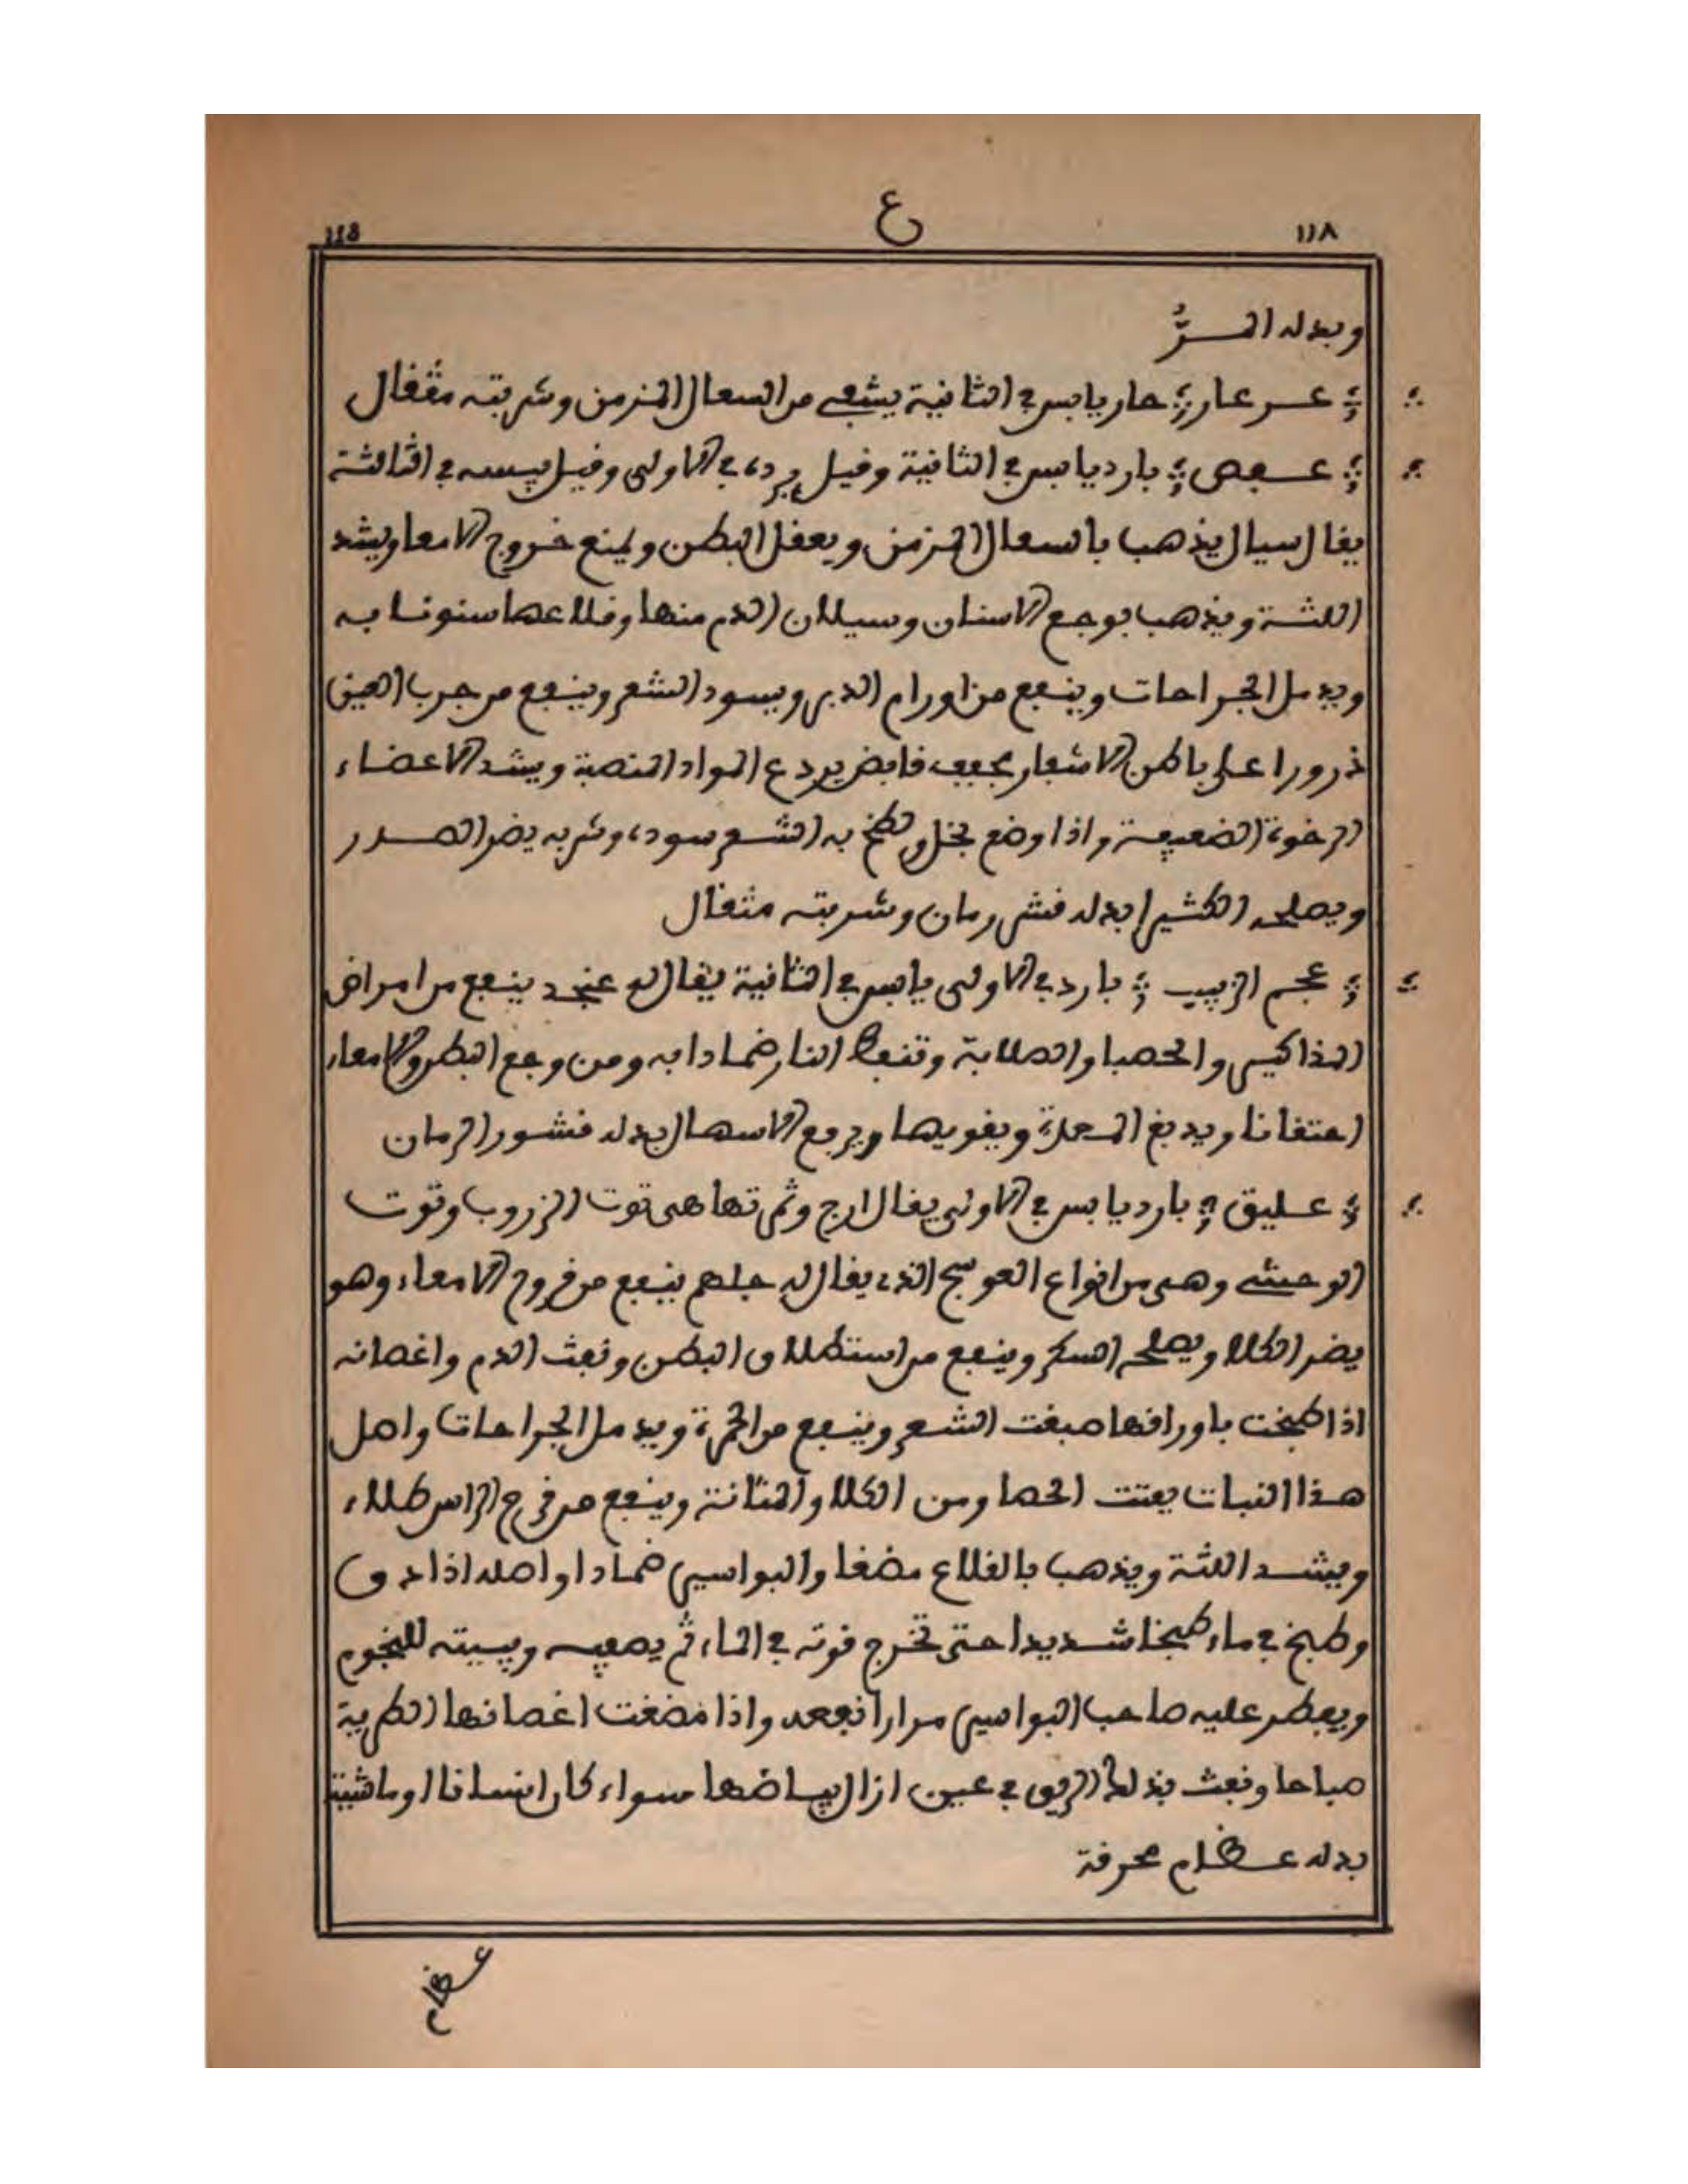 ١١٨ ع 118
وبدله المرُّ
عرعار حار يابس في الثانية يشفي من السعال المزمن وشربته مثقال
عفص بارد يابس في الثانية وقيل برده في الاولى وقيل يبسه في الثالثة
يقال سيال يذهب بالسعال المزمن ويعقل البطن ويمنع خروج الامعا ويشد
اللثة ويذهب بوجع الاسنان وسيلان الدم منها وقلاعها سنونا به
ويدمل الجراحات وينفع من اورام الدبر ويسود الشعر وينفع من جرب العين
ذرورا على باطن الاشفار يجفف قابض يردع المواد المنصبة ويشد الاعضاء
الرخوة الضعيفة واذا وضع بخل ولطخ به الشعر سوده وشربه يضر الصدر
ويصلحه الكثيرا بدله قشر رمان وشربته مثقال
عجم الزبيب بارد في الاولى يابس في الثانية يقال له عنجد ينفع من امراض
المذاكير والحصبا والصلابة وتنفط النار ضمادا به ومن وجع البطن والامعاء
احتقانا ويدبغ المعدة ويقويها ويرفع الاسهال بدله قشور الرمان
عليق بارد يابس في الاولى يقال ارج وثمرتها هي توت الزروب وتوت
الوحشي وهي من انواع العوسج الذي يقال له جلهم ينفع من قروح الامعاء وهو
يضر الكلا ويصلحه السكر وينفع من استطلاق البطن ونفث الدم واغصانه
اذا طبخت باوراقها صبغت الشعر وينفع من الحمرة ويدمل الجراحات واصل
هذا النبات يفتت الحصا ومن الكلا والمثانة وينفع من قرح الراس طلاء
ويشد اللثة ويذهب بالقلاع مضغا والبواسير ضمادا واصله اذا دق
وطبخ في ماء طبخا شديدا حتى تخرج قوته في الماء ثم يصفيه ويبيته للنجوم
ويفطر عليه صاحب البواسير مرارا نفعه واذا مضغت اغصانها الطرية
صباحا ونفث بذلك الريق في عين ازال بياضها سواء كان انسانا او ماشية
بدله عظام محرقة
عظام